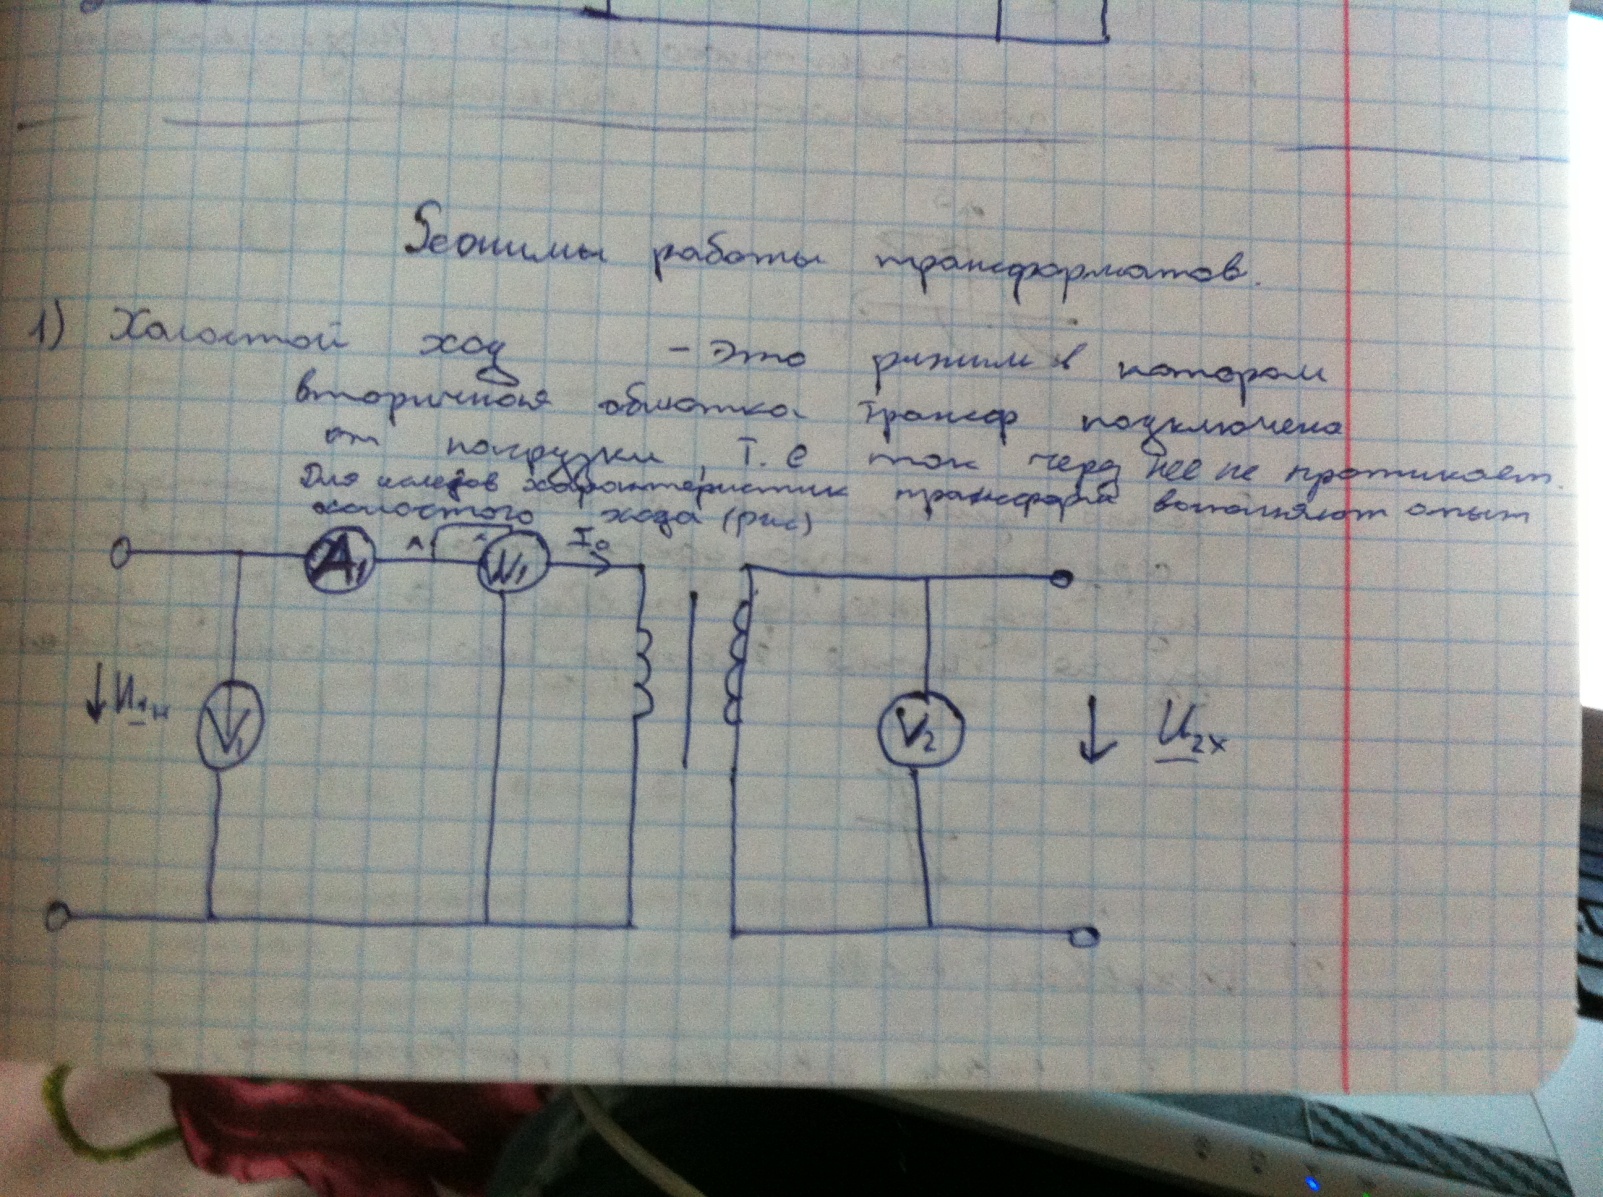 Режимы работы трансформатов.
1) Холостой ход - Это режим в котором
вторичная обмотка трансф подключена
от нагрузки, т.е ток через нее не протикает.
Для исследов характеристик трансфора выполняют опыт
холостого хода (рис)
A₁ * * W₁ I₀
U₁ₙ V₁ V₂ U₂ₓ